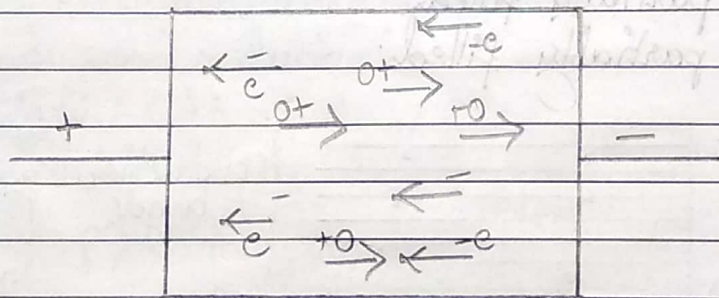 -e
e-
o+
o+
+o
+
-
-
e-
+o
-e